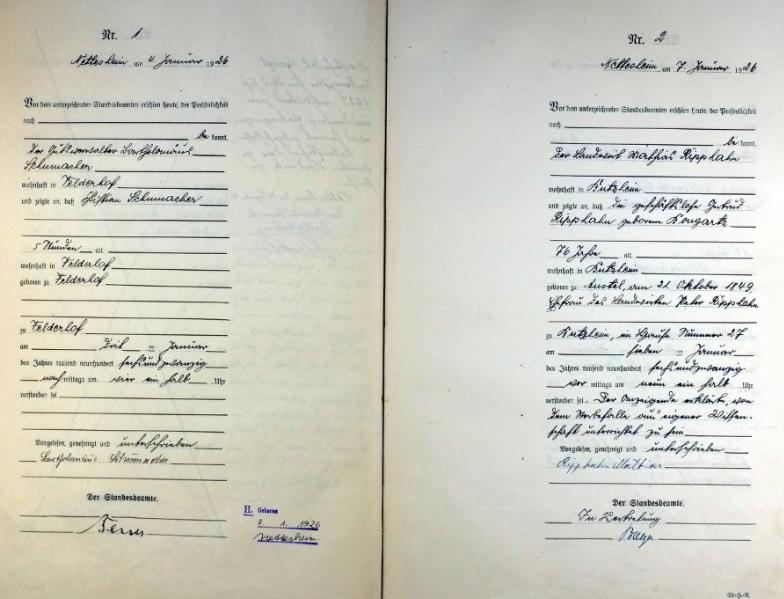 Nr. 1
Nettesheim am 4. Januar 1926
Vor dem unterzeichneten Standesbeamten erschien heute, der Persönlichkeit
nach
be kannt,
der Gutsverwalter Bartholomäus
Schumacher
wohnhaft in Felderhof
und zeigte an, daß Christian Schumacher
5 Stunden alt
wohnhaft in Felderhof
geboren zu Felderhof
zu Felderhof
am Drei ten Januar
des Jahres tausend neunhundert sechsundzwanzig
nach mittags um vier ein halb Uhr
verstorben sei
Vorgelesen, genehmigt und unterschrieben
Bartholomäus Schumacher
Der Standesbeamte.
II. Geboren
3. 1. 1926
Nettesheim
Nr. 2
Nettesheim am 7. Januar 1926
Vor dem unterzeichneten Standesbeamten erschien heute, der Persönlichkeit
nach
be kannt,
der Landwirt Mathias Ripphahn
wohnhaft in Butzheim
und zeigte an, daß die geschäftslose Gertrud
Ripphahn geborene Kongartz
76 Jahre alt
wohnhaft in Butzheim
geboren zu Anstel, am 21. Oktober 1849
Ehefrau des Landwirten Peter Ripphahn
zu Butzheim, im Hause Nummer 27
am sieben ten Januar
des Jahres tausend neunhundert sechsundzwanzig
vor mittags um neun ein halb Uhr
verstorben sei. Der Anzeigende erklärte, von
dem Sterbefalle aus eigener Wissen-
schaft unterrichtet zu sein
Vorgelesen, genehmigt und unterschrieben
Ripphahn Mathias
Der Standesbeamte.
In Vertretung